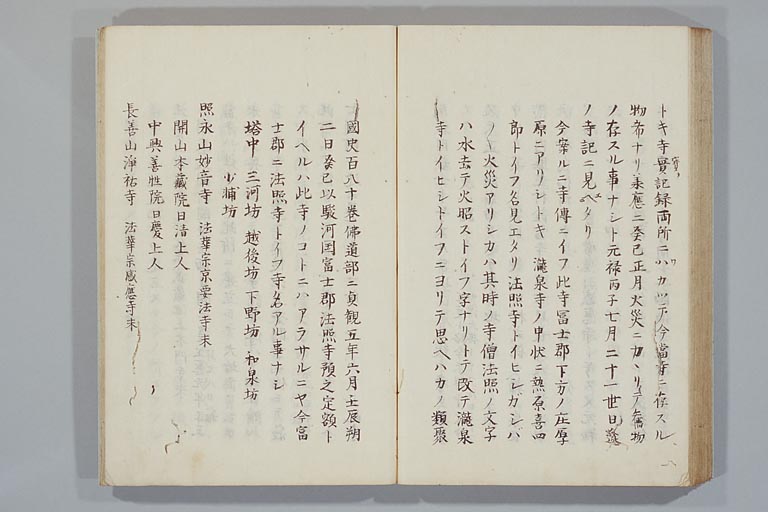 トキ寺實記録両所ニハカツテ今當寺ニ存スル
物希ナリ承應二癸巳正月火災ニカヽリテ舊物
ノ存スル事ナシト元禄丙子七月二十一世日
ノ寺記ニ見ヘタリ
今案ルニ寺傳ニイフ此寺冨士郡下方ノ庄厚
原ニアリシトキ瀧泉寺ノ申状ニ熱原喜四
郎トイフ名見エタリ法照寺トイヒシガシバ
〳〵火災アリシカハ其時ノ寺僧法照ノ文字
ハ水去テ火昭ストイフ字ナリトテ改テ瀧泉
寺トイヒシトイフニヨリテ思ヘハカノ類聚
國史百八十巻佛道部ニ貞観五年六月壬辰朔
二日癸已以駿河国富士郡法照寺預之定額ト
イヘルハ此寺ノコトニハアラサルニヤ今富
士郡ニ法照寺トイフ寺名アル事ナシ
塔中 三河坊 越後坊 下野坊 和泉坊
少輔坊
照永山妙音寺 法華宗京要法寺末
開山本蔵院日清上人
中興善性院日慶上人
長善山淨祐寺 法華宗感應寺末